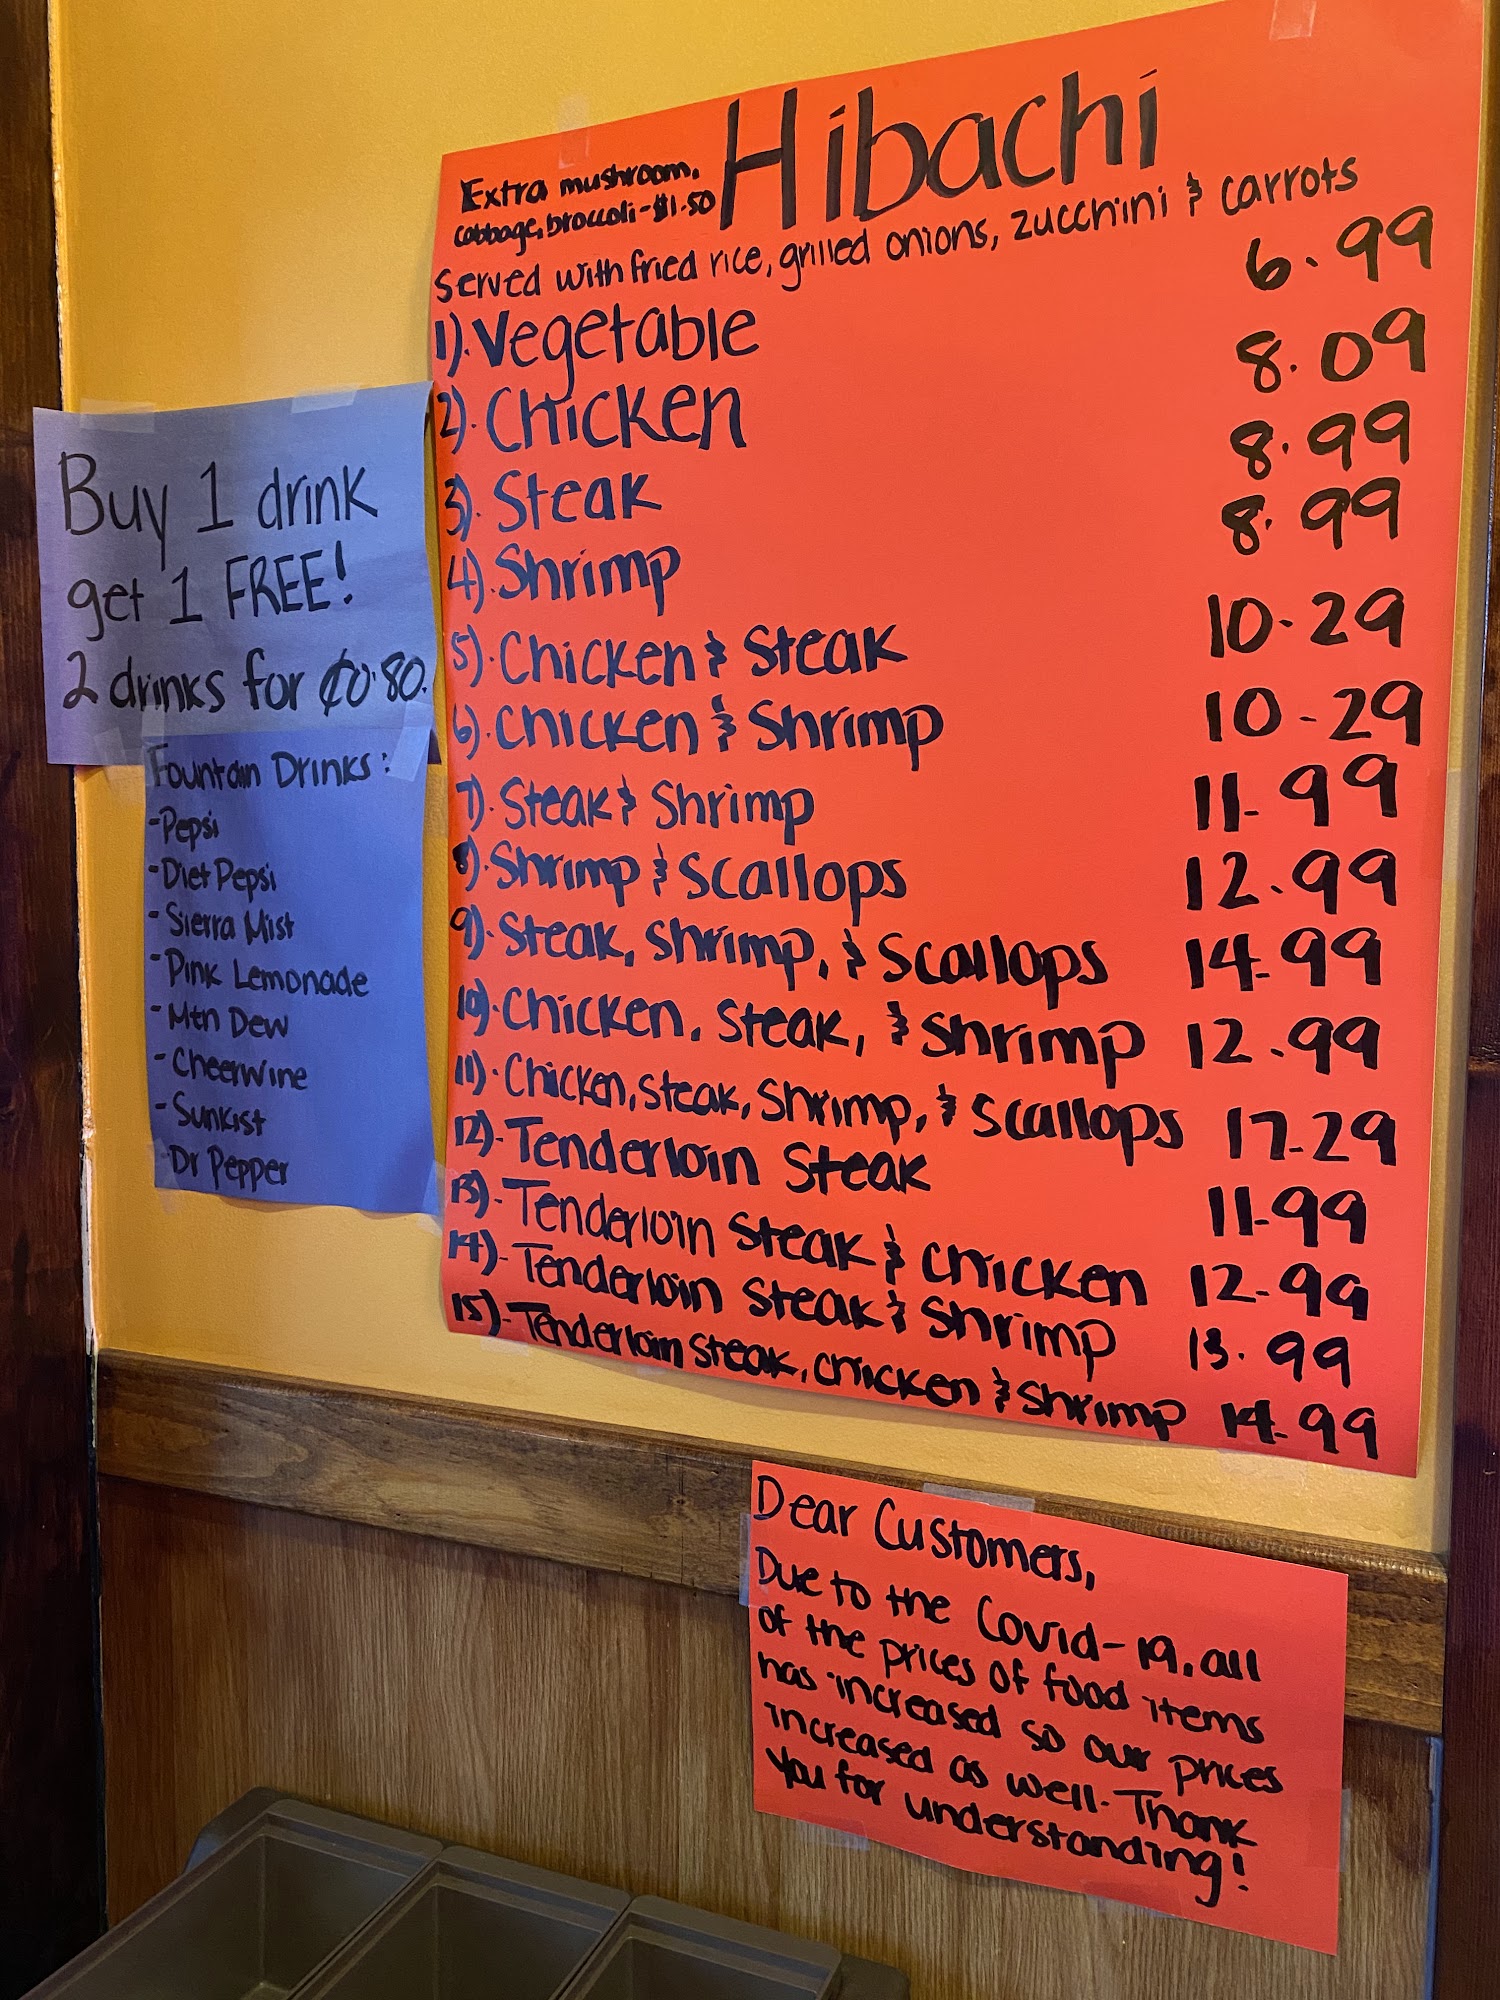 Hibachi
Extra mushroom,
cabbage, broccoli - $1.50
Served with fried rice, grilled onions, zucchini & carrots
1). Vegetable 6.99
2). Chicken 8.09
3). Steak 8.99
4). Shrimp 8.99
5). Chicken & Steak 10.29
6). Chicken & Shrimp 10-29
7). Steak & Shrimp 11.99
8). Shrimp & Scallops 12.99
9). Steak, Shrimp, & Scallops 14.99
10). Chicken, Steak, & Shrimp 12.99
11). Chicken, Steak, Shrimp, & Scallops 17.29
12). Tenderloin Steak 11.99
13). Tenderloin Steak & Chicken 12.99
14). Tenderloin Steak & Shrimp 13.99
15). Tenderloin Steak, Chicken & Shrimp 14.99
Buy 1 drink
get 1 FREE!
2 drinks for ¢0.80.
Fountain Drinks:
- Pepsi
- Diet Pepsi
- Sierra Mist
- Pink Lemonade
- Mtn Dew
- Cheerwine
- Sunkist
- Dr Pepper
Dear Customers,
Due to the Covid-19, all
of the prices of food items
has increased so our prices
increased as well. Thank
you for understanding!